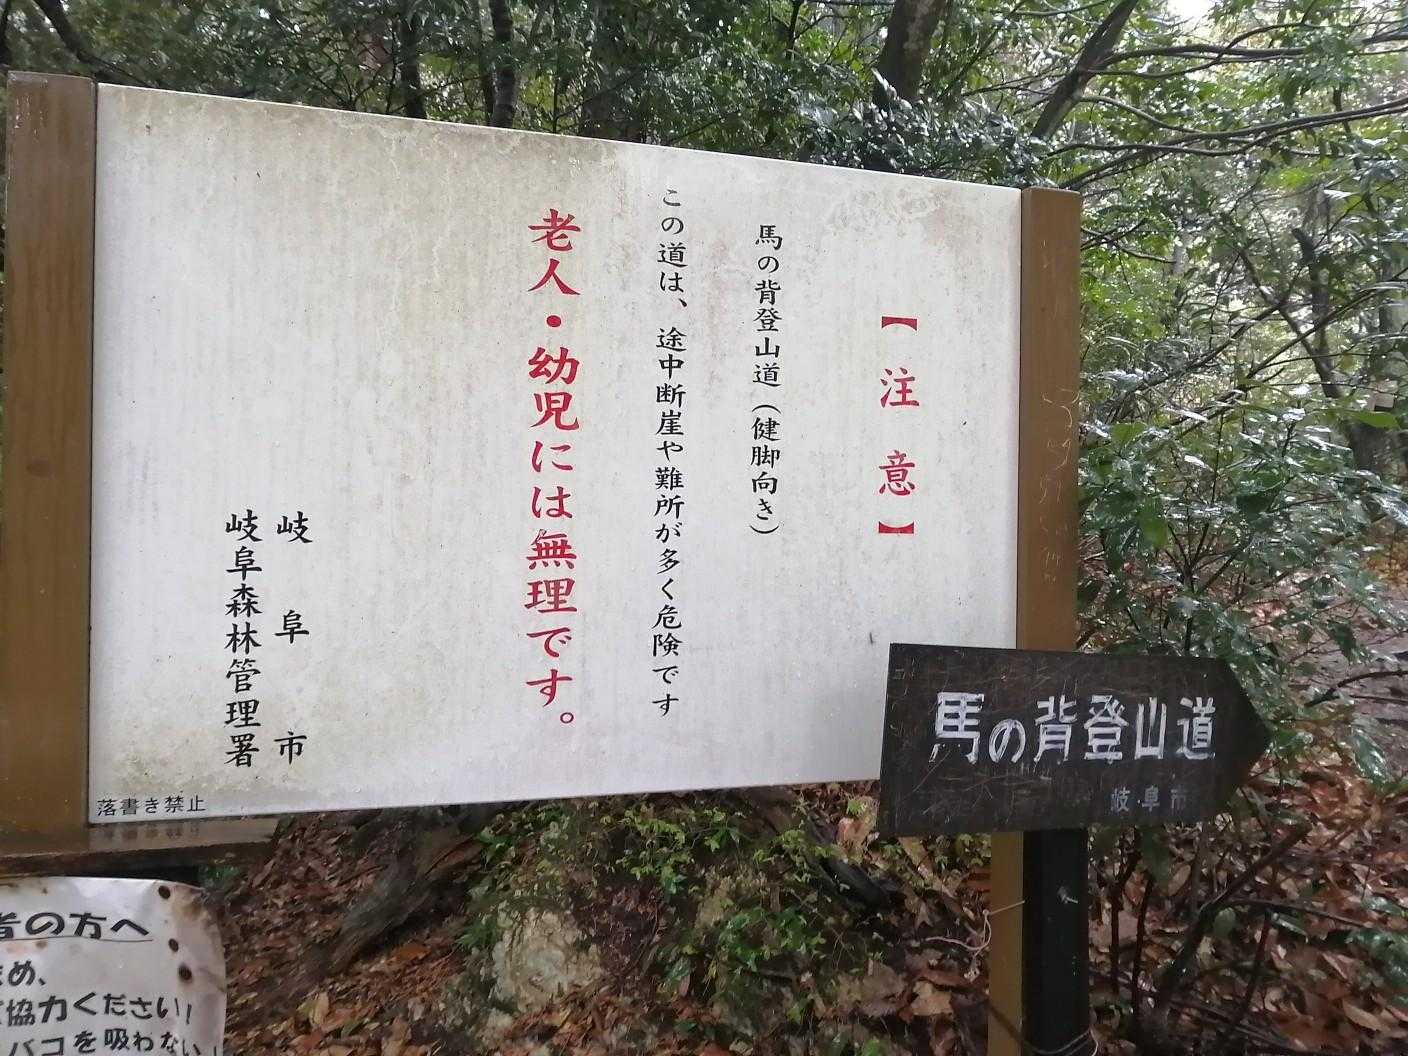 【注意】
馬の背登山道（健脚向き）
この道は、途中断崖や難所が多く危険です
老人・幼児には無理です。
岐阜市
岐阜森林管理署
落書き禁止
馬の背登山道
岐阜市
者の方へ
め、
協力ください！
バコを吸わない！